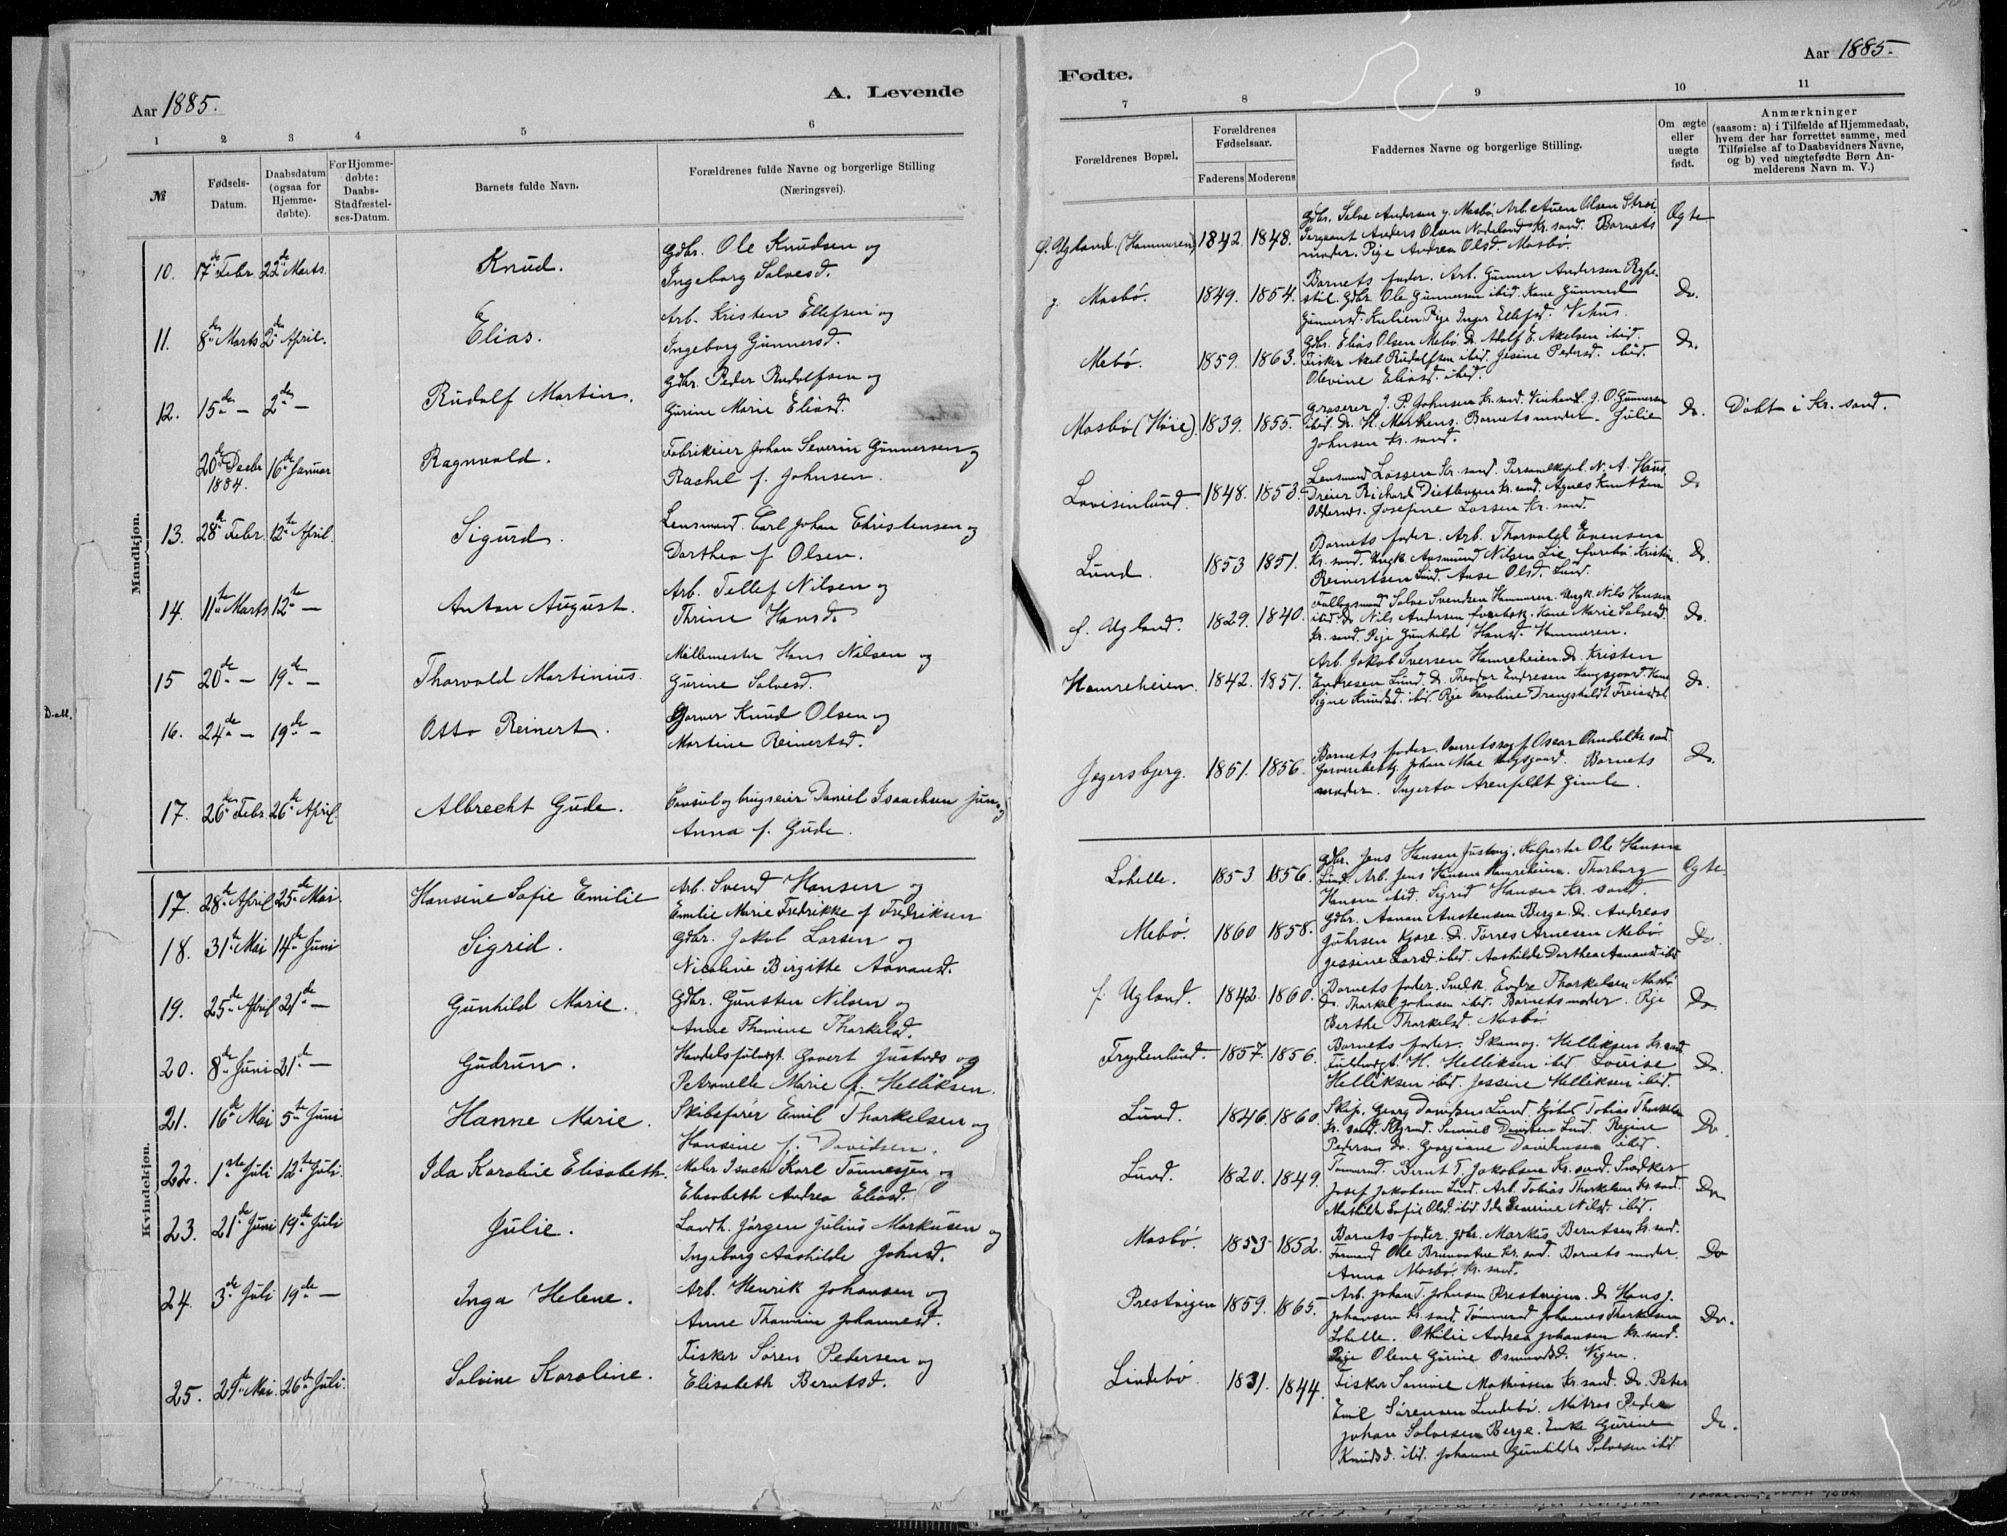 Aar 1885.
A. Levende
1 2 3 4 5 6
№
Fødsels-Datum.
Daabsdatum (ogsaa for Hjemme-døbte).
For Hjemme-døbte: Daabs-Stadfæstel-ses-Datum.
Barnets fulde Navn.
Forældrenes fulde Navne og borgerlige Stilling
(Næringsvei).
Mandkjøn.
10. 17de Febr. 22de Marts. Knud. Gdbr. Ole Knudsen og
Ingeborg Salvesd.
11. 8de Marts 2den April. Elias. Arb. Kristen Ellefsen og
Ingeborg Gunnersd.
12. 15de — 2den — Rudolf Martin. Gdbr. Peder Rudolfsen og
Gurine Marie Eliasd.
20de Decbr 1884. 16de Januar Ragnvald. Fabrikeier Johan Severin Gunnersen og
Rachel f. Johnsen.
13. 28de Febr. 12te April. Sigurd. Lensmand Carl Johan Christensen og
Dorthea f Olsen.
14. 11te Marts 12te — Anton August. Arb. Tellef Nilsen og
Thrine Hansd.
15 20de — 19de — Thorvald Martinius. Møllemester Hans Nilsen og
Gurine Salvesd.
16. 24de — 19de — Otto Reinert. Garver Knud Olsen og
Martine Reinertsd.
17. 26de Febr. 26de April. Albrecht Gude. Consul og brugseier Daniel Isaachsen jun. og
Anna f. Gude.
Kvindekjøn.
17. 28de April 25de Mai. Hansine Sofie Emilie Arb. Svend Hansen og
Emilie Marie Fredrikke f Fredriksen
18. 31te Mai 14de Juni Sigrid. Gdbr. Jakob Larsen og
Nicoline Birgitte Aanansd.
19. 25de April 21de — Gunhild Marie. Gdbr. Gunsten Nilsen og
Anne Thomine Thorkelsd.
20. 8de Juni 21de — Gudrun. Handelsfuldmgt. Govert Justnæs og
Petronelle Marie f. Helliksen.
21. 16de Mai 5te Juni Hanne Marie. Skibsfører Emil Thorkelsen og
Hansine f. Davidsen.
22. 1ste Juli 12te Juli. Ida Karoline Elisabeth. Maler Isach Karl Tønnesjen og
Elisabeth Andrea Eliasd.
23. 21de Juni 19de Juli Julie. Landh. Jørgen Julius Markusen og
Ingeborg Aashilde Johnsd.
24. 3de Juli 19de — Inga Helene. Arb. Henrik Johansen og
Anne Thomine Johannesd.
25. 25de Mai. 26de Juli. Salvine Karoline. Fisker Søren Petersen og
Elisabeth Berntsd.
Fødte.
Aar 1885.
7 8 9 10 11
Forældrenes Bopæl.
Forældrenes Fødselsaar.
Faderens Moderens
Faddernes Navne og borgerlige Stilling.
Om ægte eller uægte født.
Anmærkninger
(saasom: a) i Tilfælde af Hjemmedaab,
hvem der har forrettet samme, med
Tilføielse af to Daabsvidners Navne,
og b) ved uægtefødte Børn An-
melderens Navn m. V.)
f. Ugland. (Hammeren) 1842. 1848. Gdbr. Salve Andersen y. Mosbø. Arb. Auen Olsen
Sergeant Anders Olsen Nodeland Kr.sand. Barnets
moder. Pige Andrea Olsd. Mosbø. Ægte
y. Mosbø. 1849. 1854. Barnets fader. Arb. Gunner Andersen
Gdbr. Ole Gunnersen ibid. Kone Gunnerd
Gunnersd. Kulien Pige Inger Ellefsd. Vehus. Do.
Mebø. 1859. 1863. Gdbr. Elias Olsen Mebø. Do Adolf E. Axelsen ibid.
Fisker Axel Rudolfsen ibid. Gesine Pedersd. ibid.
Olevine Eliasd. ibid. Do.
Mosbø (Høie). 1839. 1855. Grosserer J. P. Johnsen Kr.sand. J. O. Gunnersen
ibid. Do H. Markens. Barnets moder. Julie
Johnsen Kr.sand. Do. Døbt i Kr.sand.
Lovisenlund. 1848. 1853. Lensmand Lassen Kr.sand. Personelkapl. N. A. Hans
Dreier Richard Dietlevsen Kr.sand. Agnes Knutsen
Oddernes. Josefine Lassen Kr.sand. Do
Lund. 1853 1851. Barnets fader. Arb. Thorvald Evensen
Kr.sand. Ungk. Aasmund Nilsen Lie Kristin
Reinertsen Lund. Aase Olsd. Lund. Do.
f. Ugland. 1829. 1840. Salve Svendsen Hammeren. Ungk. Nils Hansen
ibid. Do Nils Andersen Kone Marie Salvesd.
Kr.sand. Pige Gunhild Hansd. Hammeren. Do.
Hamreheien. 1842. 1851. Arb. Jakob Iversen Hamreheien. Do. Kristen
Endresen Lund. Do. Theodor Endresen Kone
Signe Knudsd. ibid. Pige Caroline Drangsholdt Do.
Jegersbjerg. 1851. 1856. Barnets fader. Oscar
Johan Moe Barnets
moder. Ingerta Arenfeldt Gimle. Do.
Lohelle. 1853 1856. Gdbr. Jens Hansen Justvig. Kolportør Ole Hansen
Lund. Arb. Jens Hansen Hamreheien. Thorborg
Hansen ibid. Sigrid Hansen Kr.sand. Ægte.
Mebø. 1860 1858. Gdbr. Aanan Austensen Berge. Do. Andreas
Gjøhrsen Kjøre. Do. Torres Arnesen Mebø.
Jessine Larsd ibid. Aashilde Dorthea Aanansd ibid Do.
f. Ugland. 1842. 1860. Barnets fader. Endre Thorkelsen Mosbø
Do. Thorkel Johnsen ibid. Barnets moder. Pige
Berthe Thorkelsd. Mosbø Do.
Frydenlund. 1857. 1856. Barnets fader. Helliksen Kr.sand
H. Helliksen ibid Louise
Helliksen ibid. Jessine Helliksen ibid. Do.
Lund. 1846. 1860. Skip. Georg Davidsen Lund. Tobias Thorkelsen
Kr.sand. Samuel Davidsen Lund. Regine
Pedersen Do. Georgiane Davidsen ibid. Do.
Lund. 1820. 1849. Tømmermd. Bernt T. Jakobsen Kr.sand. Snedker
Josef Jakobsen Lund. Arb. Tobias Thorkelsen Kr.sand.
Mathilde Sofie Olsd. ibid Ida Severine Nilsd. ibid. Do.
Mosbø. 1853. 1852. Barnets fader. Gdbr. Markus Berntsen Kr.sand.
Formand Ole Brunvatne Kr.sand. Barnets moder.
Anna Mosbø. Kr.sand. Do
Prestvigen 1859. 1865. Arb. Johan T. Johnsen Prestvigen. Do Hans J.
Johansen Kr.sand. Tømmermd Johannes Thorkelsen
Lohelle. Othilie Andrea Johansen Kr.sand.
Pige Olene Gurine Osmundsd. Vigen. Do.
Lindebø. 1831. 1844. Fisker Samuel Mathiasen Kr.sand. Do. Peter
Emil Sørensen Lindebø. Matros Peder
Johan Salvesen Berge. Enke Gurine
Knudsd. ibid. Johanne Guntilda Salvesen ibid Do.